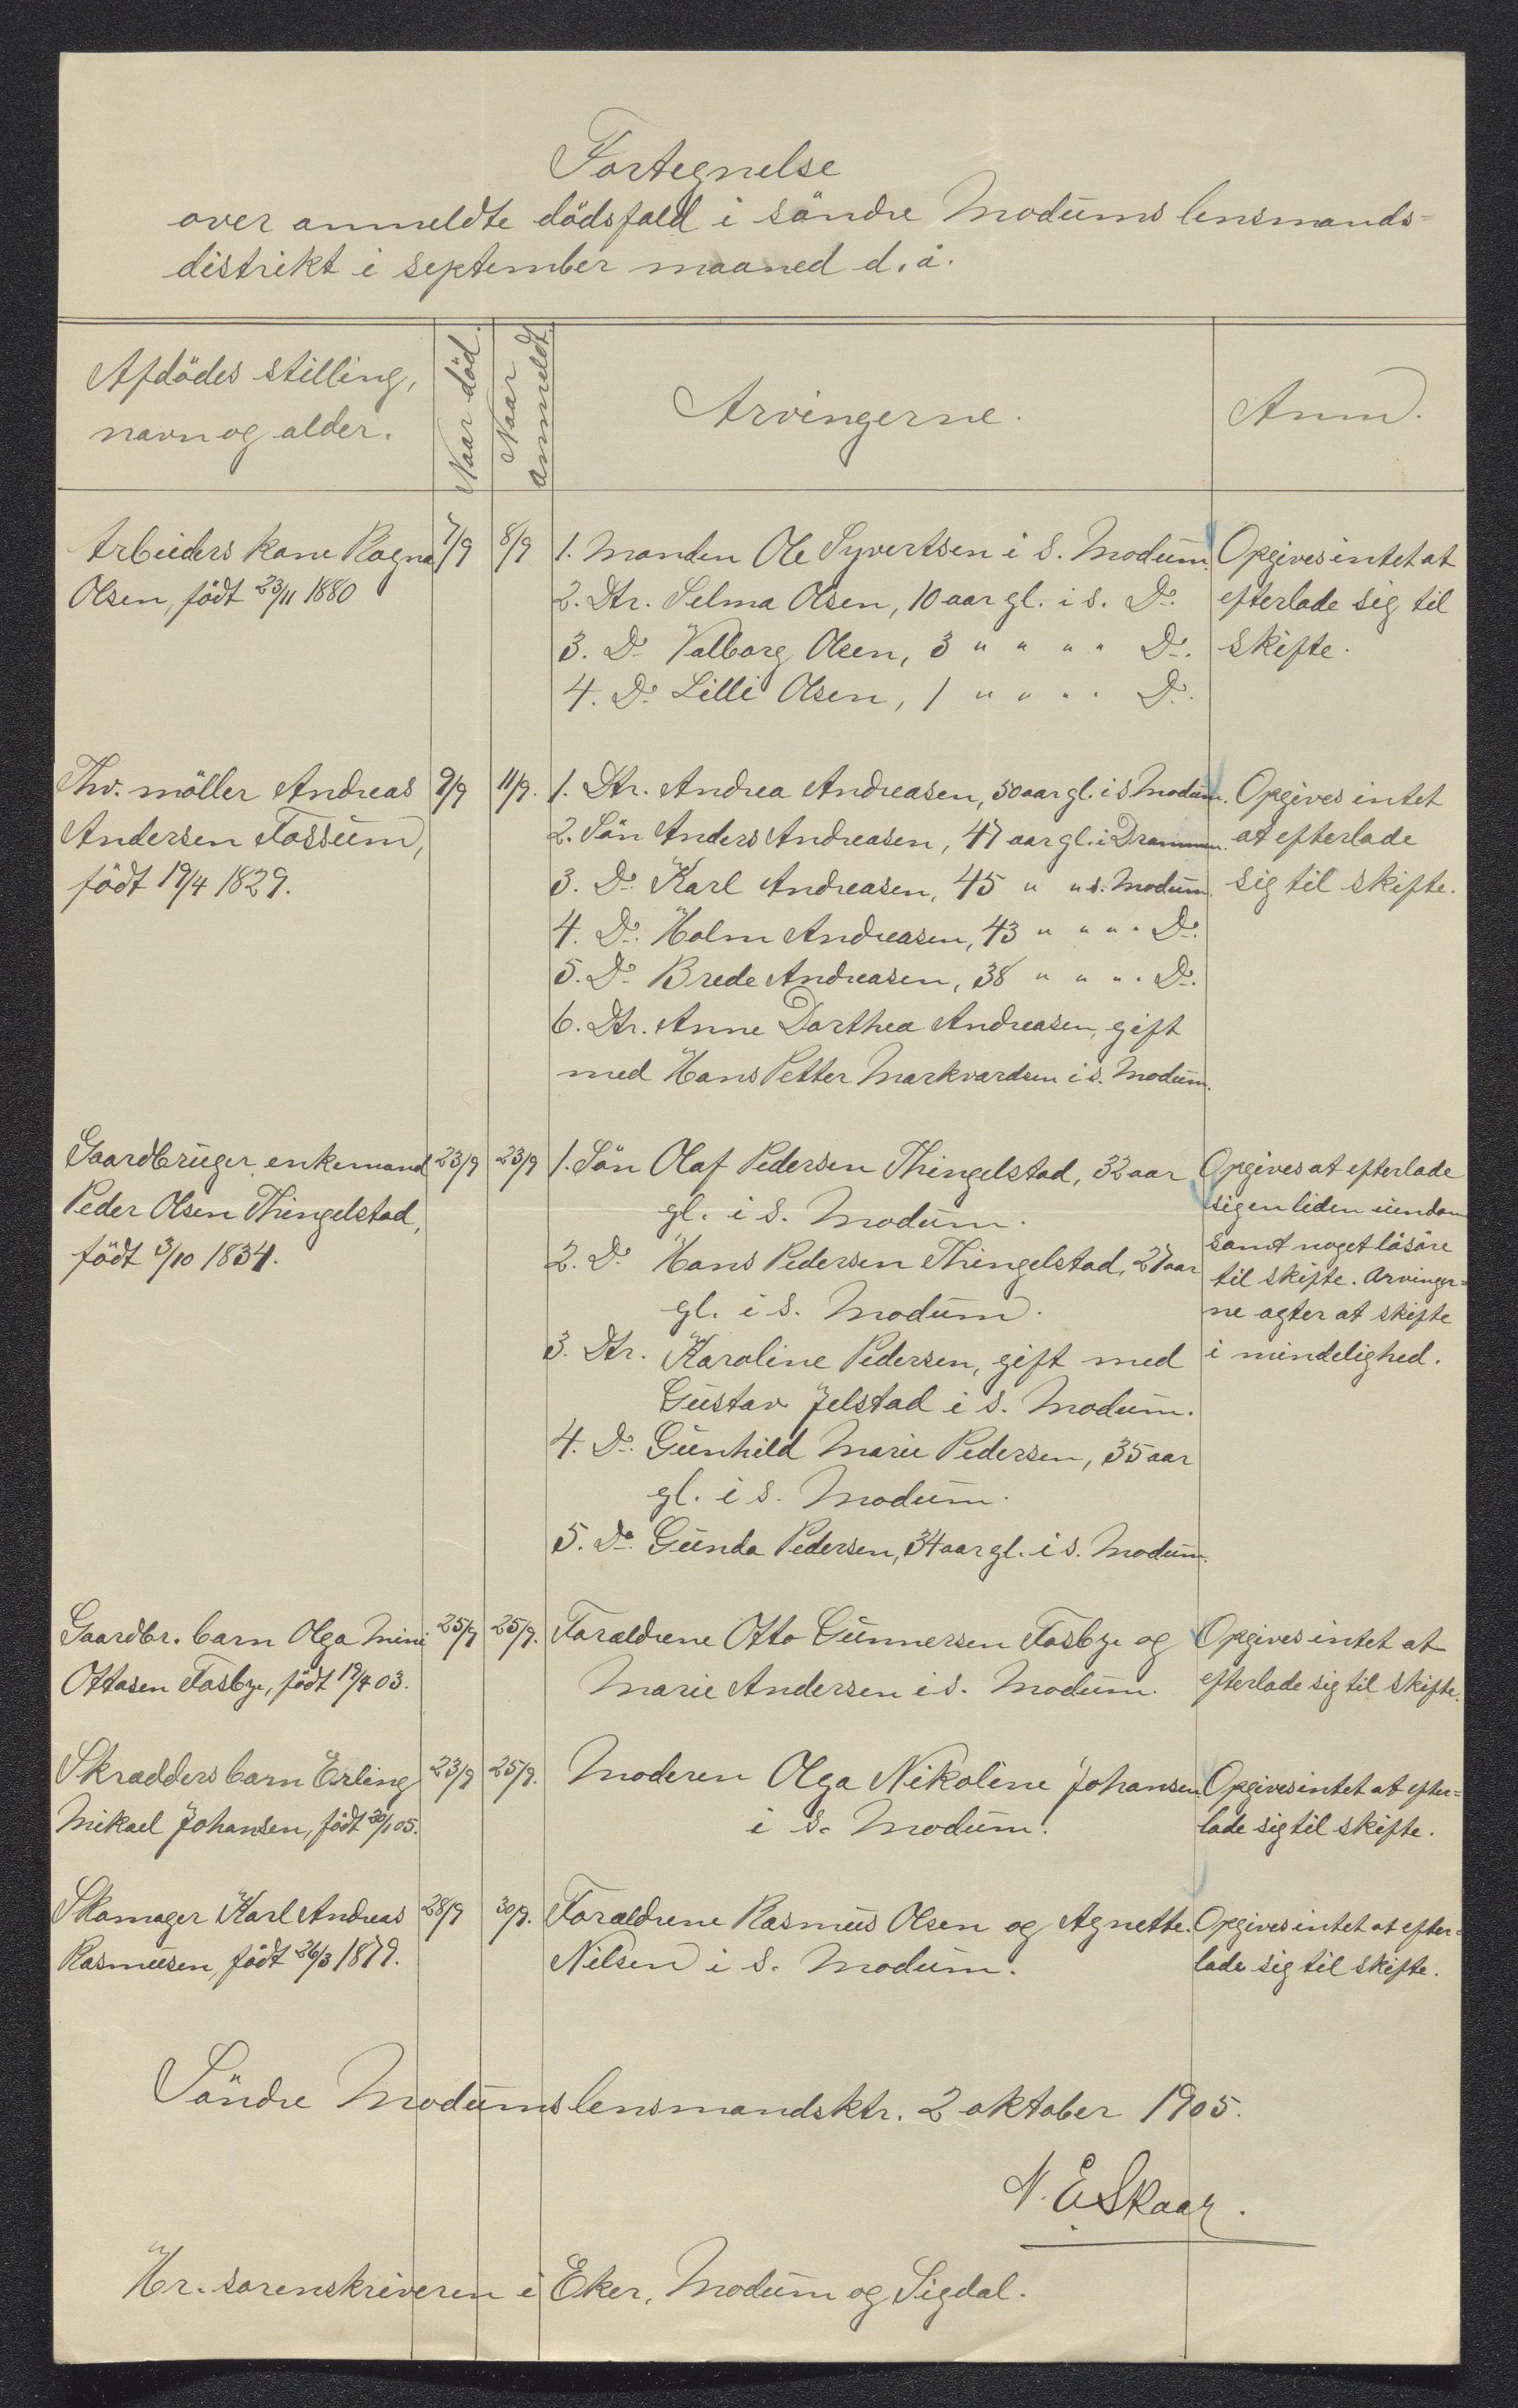 Fortegnelse
over anmeldte dödsfald i söndre Modums lensmands=
distrikt i september maaned d. å.
Afdödes stilling,
navn og alder.
Naar död.
Naar
anmeldt.
Arvingerne.
Anm.
Arbeiders kone Ragna
Olsen, födt 23/11 1880
7/9
8/9
1. Manden Ole Syvertsen i s. Modum.
2. Dtr. Selma Olsen, 10 aar gl. i s. Do.
3. Do. Valborg Olsen, 3 " " " " Do.
4. Do. Lilli Olsen, 1 " " " " Do.
Opgives intet at
efterlade sig til
skifte.
Fhv. möller Andreas
Andersen Fossum,
födt 19/4 1829.
9/9
11/9.
1. Dtr. Andrea Andreasen, 50 aar gl. i s Modum.
2. Sön Anders Andreasen, 47 aar gl. i Drammen.
3. Do. Karl Andreasen, 45 " " s. Modum.
4. Do. Holm Andreasen, 43 " " " " Do.
5. Do. Brede Andreasen, 38 " " " " Do.
6. Dtr. Anne Dorthea Andreasen, gift
med Hans Petter Markvardsen i s. Modum.
Opgives intet
at efterlade
sig til skifte.
Gaardbruger, enkemand
Peder Olsen Thingelstad,
födt 3/10 1834.
23/9
23/9
1. Sön Olaf Pedersen Thingelstad, 32 aar
gl. i s. Modum.
2. Do. Hans Pedersen Thingelstad, 27 aar
gl. i s. Modum.
3. Dtr. Karoline Pedersen, gift med
Gustav Jelstad i s. Modum.
4. Do. Gunhild Marie Pedersen, 35 aar
gl. i s. Modum.
5. Do. Gunda Pedersen, 34 aar gl. i s. Modum.
Opgives at efterlade
sig en liden eiendom
samt noget lösöre
til skifte. Arvinger=
ne agter at skifte
i mindelighed.
Gaardbr. barn Olga Mini
Ottosen Fosbye, födt 19/4 03.
25/9
25/9.
Forældrene Otto Gunnersen Fosbye og
Marie Andersen i s. Modum.
Opgives intet at
efterlade sig til skifte.
Skrædders barn Erling
Mikael Johansen, födt 30/1 05.
23/9
25/9.
Moderen Olga Nikoline Johansen
i s. Modum.
Opgives intet at efter=
lade sig til skifte.
Skomager Karl Andreas
Rasmusen, födt 26/3 1879.
28/9
30/9.
Forældrene Rasmus Olsen og Agnette
Nilsen i s. Modum.
Opgives intet at efter=
lade sig til skifte.
Söndre Modums lensmandsktr. 2 oktober 1905.
N. E Skaar.
Hr. sorenskriveren i Eker, Modum og Sigdal.